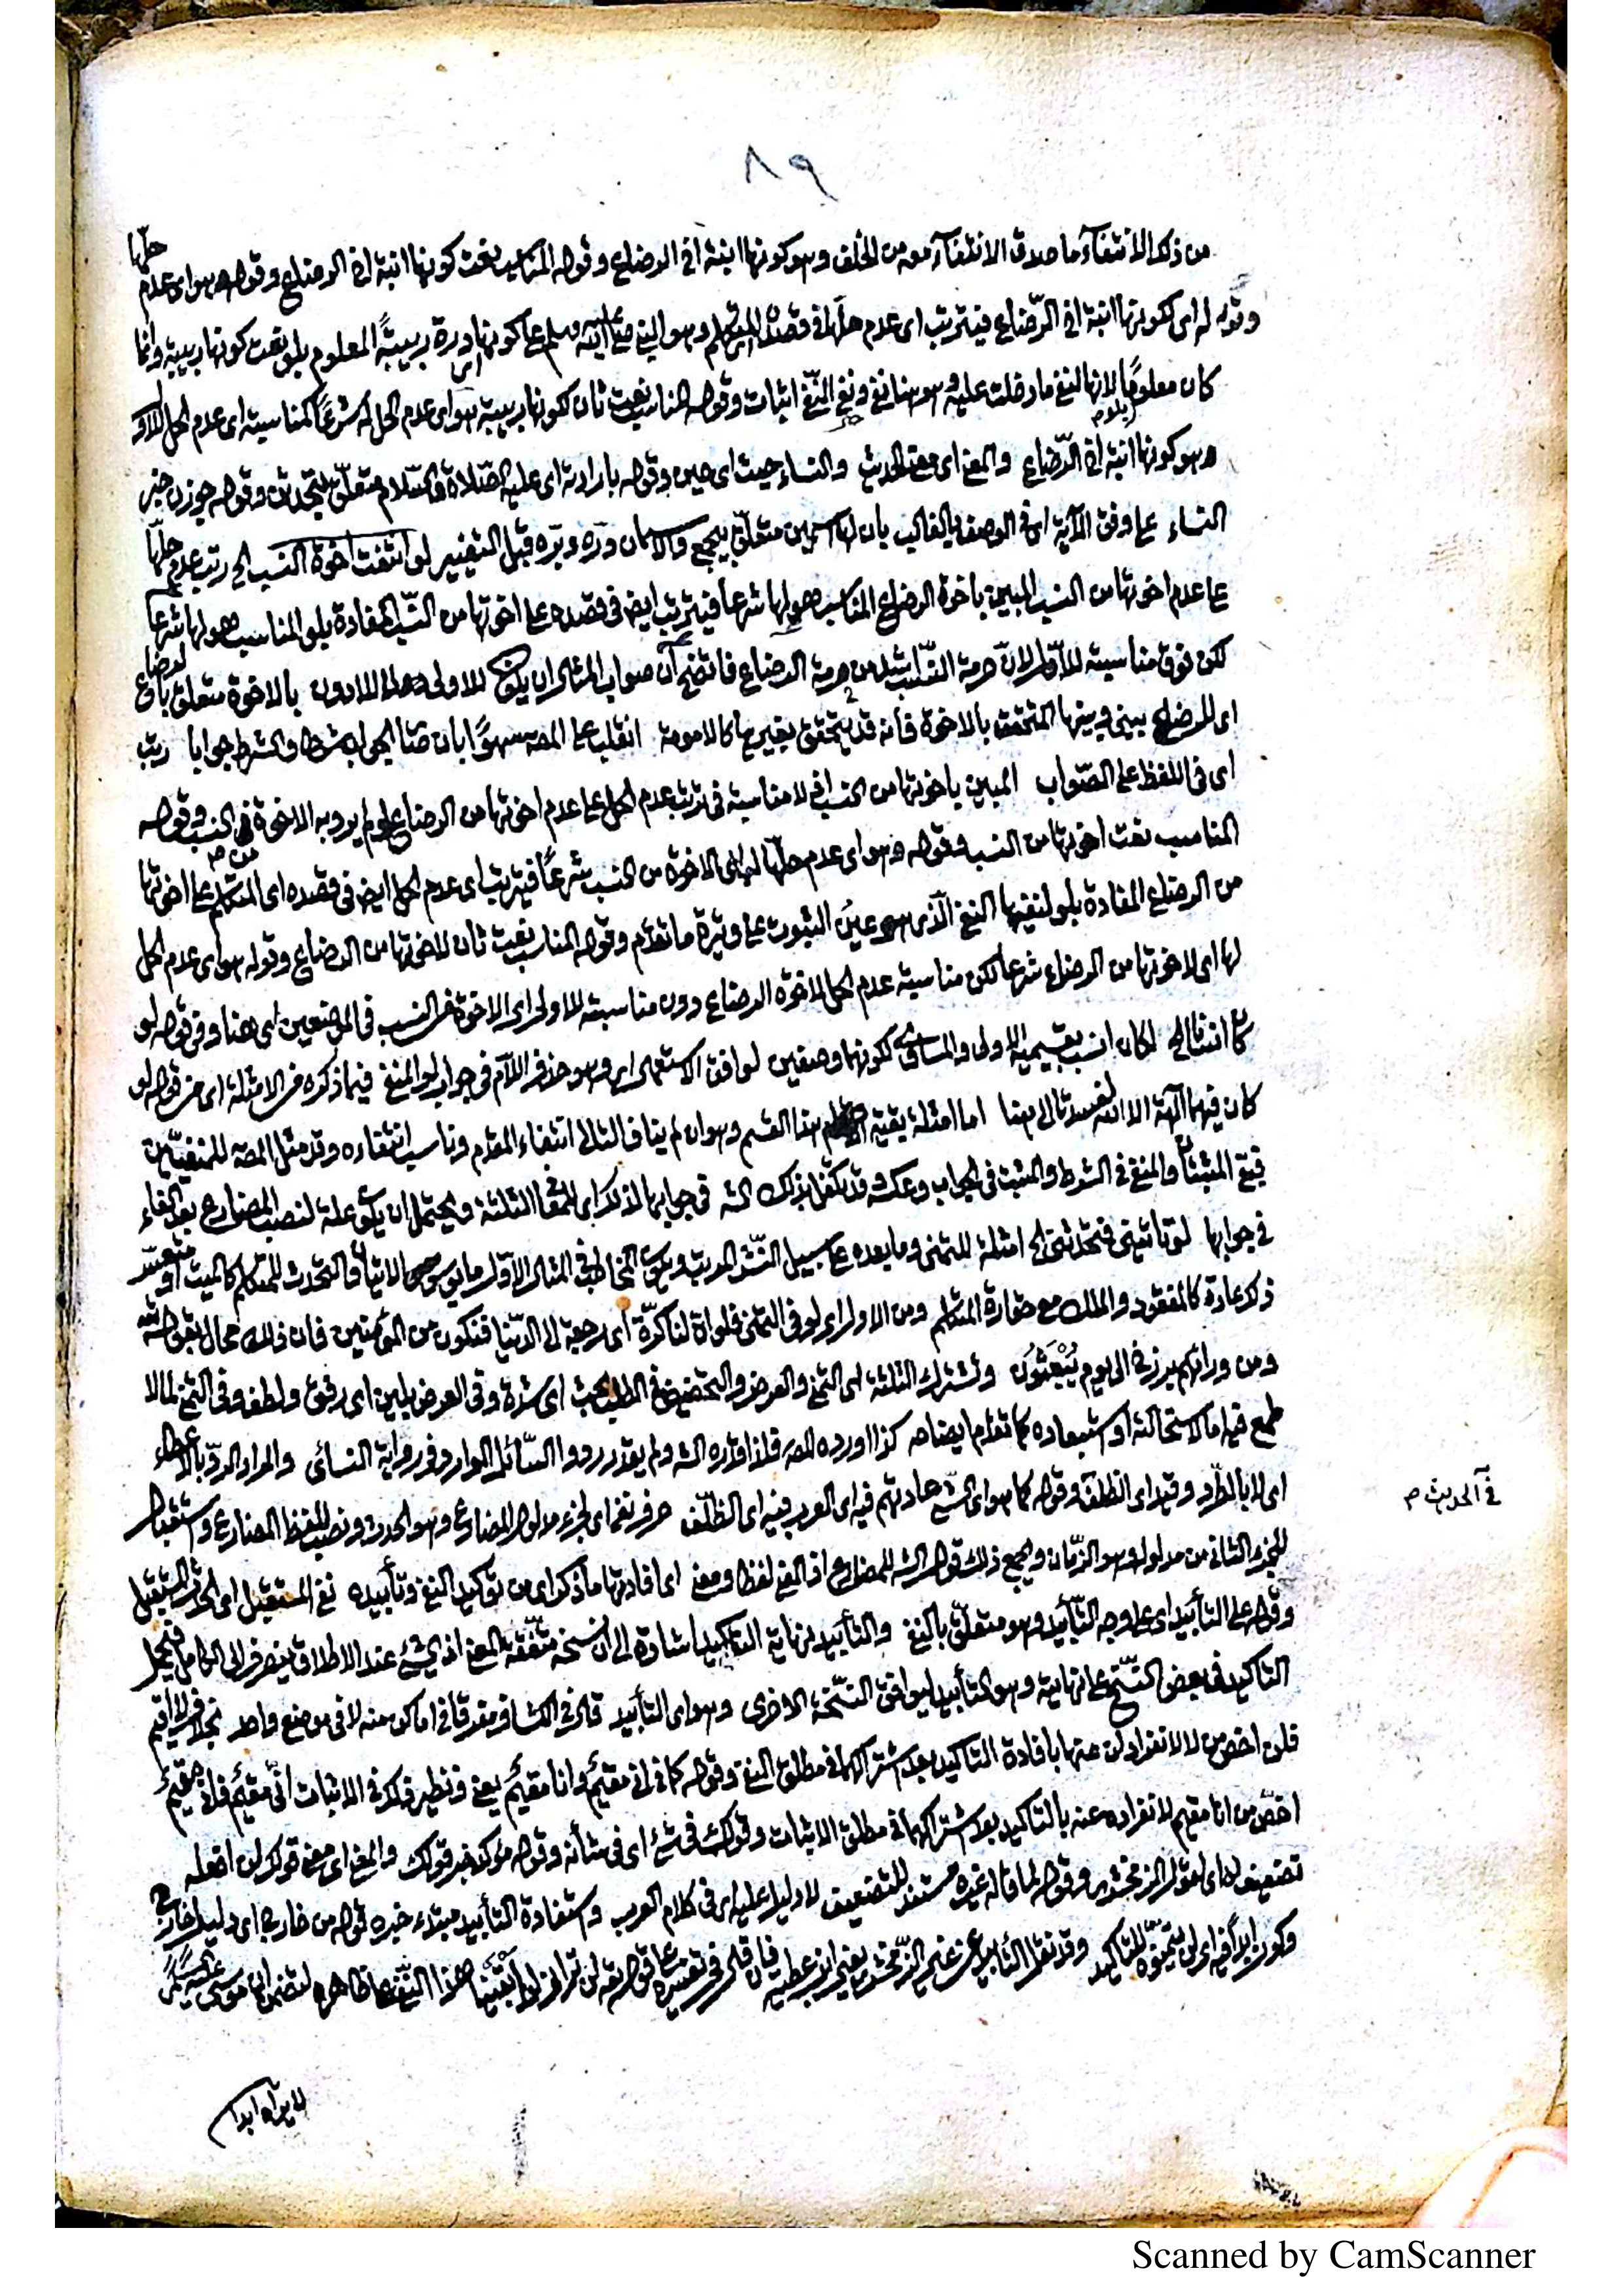 ٨٩
من ذلك الانتفاء ما صدق الانتفاء معه من الخلف وهو كونها ابنة اخي الرضاع وقوله المناسب نعت كونها ابنة اخي الرضاع وقوله هو اي عدم حلها
وقوله له اي لكونها ابنة اخي الرضاع فيترتب اي عدم حلها في قصد المتكلم وهو النبي صلى الله عليه وسلم على كونها اي درة ربيبة المعلوم بلو نعت كونها ربيبة وانما
كان معلوما لانها لنفي ما دخلت عليه وهو هنا نفي ونفي النفي اثبات وقوله المناسب نعت ثان لكونها ربيبة هو اي عدم الحل له شرعا كمناسبته اي عدم الحل للاول
وهو كونها ابنة اخي الرضاع والمعنى اي معنى الحديث والنساء حيث اي حين وقوله بارادته اي عليه الصلاة والسلام متعلق بتحدثن وقوله جوزن خبر
النساء على وفق الآية اي في الوصف بالغالب بان لها اسمين متعلق بجمع والاسمان درة وبرة قبل التغيير لو انتفت اخوة النسب الخ رتب عدم حلها
على عدم اخوتها من النسب المبين باخوة الرضاع المناسب هو لها شرعا فيترتب ايضا في قصده على اخوتها من النسب المفادة بلو المناسب هو لها شرعا
لكن فوق مناسبته للاول لان حرمة النسب اشد من حرمة الرضاع فاتضح ان صواب المثال ان يكون للاولى لا للادون بالاخوة متعلق بالرضاع
اي للرضاع بيني وبينها المتحقق بالاخوة فانه قد يتحقق بغيرها كالامومة انقلب على المصه سهوا بان صار الجواب شرطا والشرط جوابا رتب
اي في اللفظ على الصواب المبين باخوتها من النسب اذ لا مناسبة في ترتب عدم الحل على عدم اخوتها من الرضاع لو لم يرد به الاخوة من النسب وقوله
المناسب نعت اخوتها من النسب وقوله وهو اي عدم حلها لها اي الاخوة من النسب شرعا فيترتب اي عدم الحل ايضا في قصده اي المتكلم على اخوتها
من الرضاع المفادة بلو لنفيها النفي الذي هو عين الثبوت على وتيرة ما تقدم وقوله المناسب نعت ثان لاخوتها من الرضاع وقوله هو اي عدم الحل
لها اي لاخوتها من الرضاع شرعا لكن مناسبة عدم الحل لاخوة الرضاع دون مناسبته للاولى اي الاخوة من النسب في الموضعين اي هنا وفي قوله لو
كان انسانا لكان انسب بقسيميه الاولى والمساوي لكونهما وصفين لوافق الاستعمال وهو حذف اللام في جواب لو المنفي فيما ذكره من الامثلة اي من قوله لو
كان فيهما آلهة الا الله لفسدتا الى هنا اما امثلة بقية هذا القسم وهو ان لم يناف التالي انتفاء المقدم وناسب انتفاءه وقد مثل المصه للمنفيين
فبقي المثبتان والمنفي في الشرط والمثبت في الجواب وعكسه وقد تكفل بذلك الشه في جوابها لذلك اي للمعاني الثلثة ويحتمل ان يكون علة لنصب المضارع بعد الفاء
في جوابها لو تأتيني فتحدثني الخ امثلة للتمني وما بعده على سبيل النشر المرتب ويكون المخاطب في المثال الاول مأيوس الاتيان والتحدث للمتكلم كالميت او متعسر
ذلك عادة كالمفقود والملك مع حقارة المتكلم ومن الاول اي لو في التمني فلو ان لنا كرة اي رجعة الى الدنيا فنكون من المؤمنين فان ذلك محال بقوله تعالى
ومن ورائهم برزخ الى يوم يبعثون وتشترك الثلثة اي التمني والعرض والتحضيض في الطلب بحث اي شدة وفي العرض بلين اي رفق ولطف وفي التمني لما لا
طمع فيه اما لاستحالته او استبعاده كما تقدم ايضاحه كذا اورده المصه فلذا اقره الشه ولم يقدر ردوا السائل الوارد في رواية النسائي والمراد الرد بالاعطاء
اي لا بالطرد وقيد اي الظلف وقوله كما هو اي الشيء عادتهم فيه اي العرب فيه اي الظلف حرف نفي اي لجزء مدلول المضارع وهو الحدث ونصب للفظ المضارع واستقبال
في الحديث م
للجزء الثاني من مدلوله وهو الزمان ويجمع ذلك قول الشه للمضارع اذ النفي لفظا ومعنى اي افادتها ما ذكر اي من توكيد النفي وتأبيده نفي المستقبل اي الحدث المستقبل
وقوله على التأبيد اي على وجه التأبيد وهو متعلق بالنفي والتأبيد نهاية التأكيد اشارة الى ان نسخه متفقة المعنى اذ الشيء عند الاطلاق ينصرف الى الكامل فيحمل
التأكيد في بعض النسخ على نهايته وهو التأبيد ليوافق النسخة الاخرى وهو اي التأبيد قال في الكشاف مفرقا في اماكن منه لا في موضع واحد بخلاف لا اقيم
فلن اخص من لا لانفراد لن عنها بافادة التأكيد بعد اشتراكهما في مطلق النفي وقوله كما في اني مقيم وانا مقيم يعني ونظير ذلك في الاثبات اني مقيم فاني مقيم
اخص من انا مقيم لانفراده عنه بالتأكيد بعد اشتراكهما في مطلق الاثبات وقولك في شيء اي في شأنه وقوله مؤكد خبر قولك والمعنى اي معنى قولك لن افعله
تضعيف له اي لقول الزمخشري وقوله لما قاله غيره مستند للتضعيف لا دليل عليه اي في كلام العرب واستفادة التأبيد مبتدء خبره قوله من خارج اي دليل خارجي
وكون ابدا فيه اي لن يتمنوه للتأكيد وقد نقل التأبيد عن غير الزمخشري يعني ابن عطية فان قال في تفسيره على قوله تع لن تراني لو ابقينا هذا النفي على ظاهره لتضمن ان موسى عليه السلام
لا يراه ابدا
Scanned by CamScanner